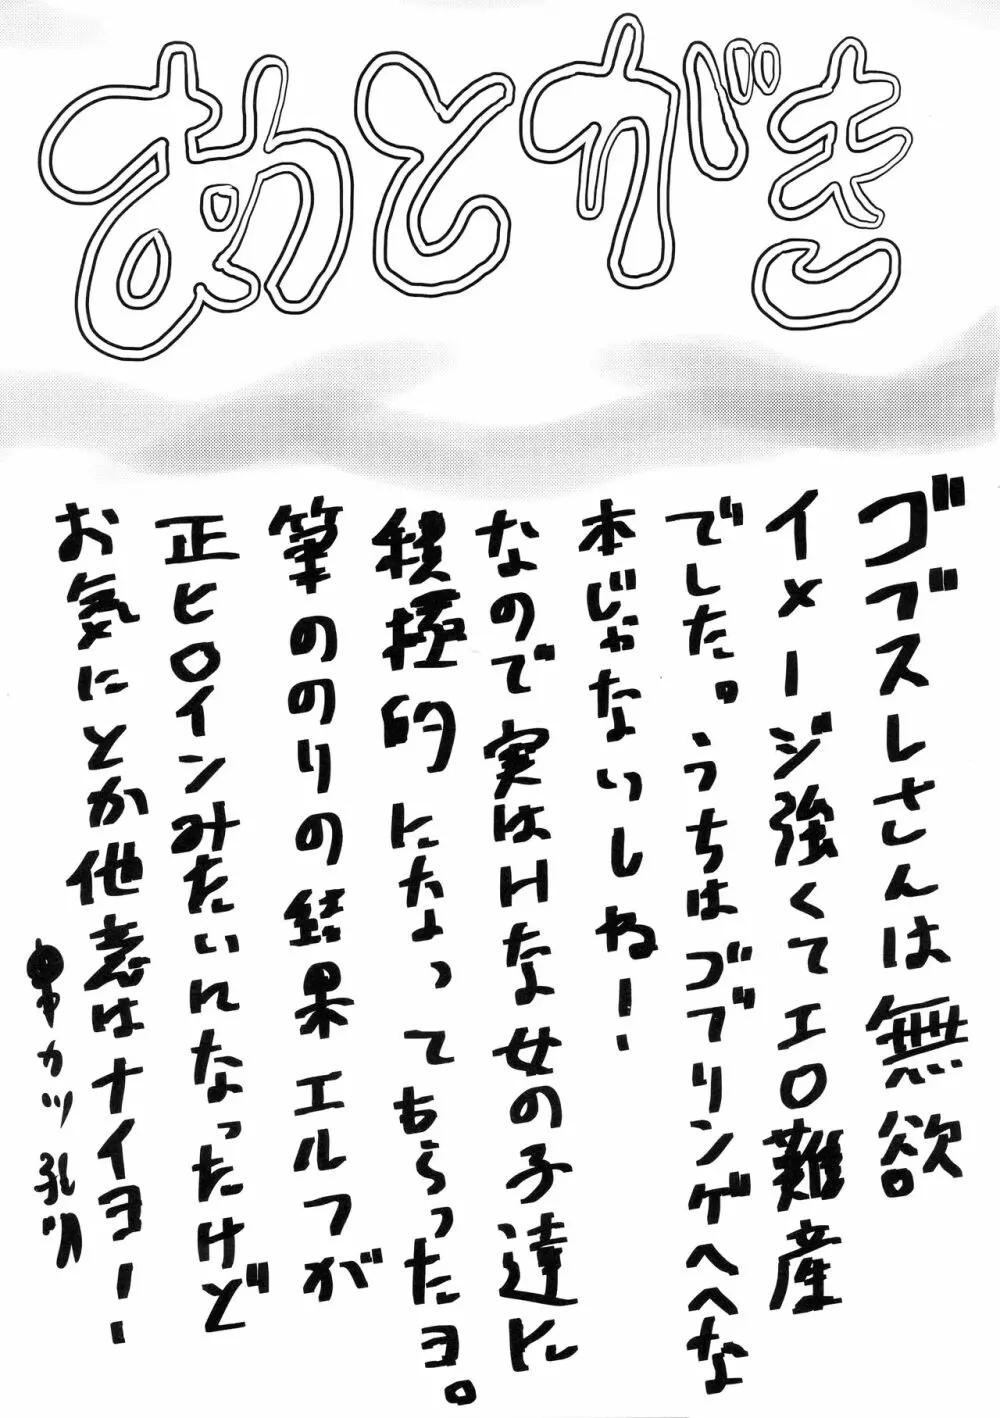 あとがき
ゴブスレさんは無欲
イメージ強くてエロ難産
でした。うちはゴブリンゲヘヘな
本じゃないしねー!
なので実はHな女の子達に
積極的になってもらったヨ。
筆ののりの結果エルフが
正ヒロインみたいになったけど
お気にとか他意はナイヨー!
カツ